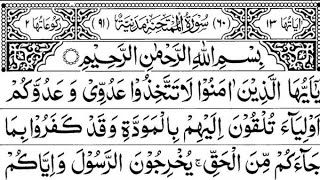 اٰيَاتُهَا ١٣ (٦٠) سُوْرَةُ الْمُمْتَحِنَةِ مَدَنِيَّةٌ (٩١) رُكُوْعَاتُهَا ٢
بِسْمِ اللّٰهِ الرَّحْمٰنِ الرَّحِيْمِ
يٰٓاَيُّهَا الَّذِيْنَ اٰمَنُوْا لَا تَتَّخِذُوْا عَدُوِّىْ وَ عَدُوَّكُمْ
اَوْلِيَآءَ تُلْقُوْنَ اِلَيْهِمْ بِالْمَوَدَّةِ وَ قَدْ كَفَرُوْا بِمَا
جَآءَكُمْ مِّنَ الْحَقِّ ۚ يُخْرِجُوْنَ الرَّسُوْلَ وَ اِيَّاكُمْ